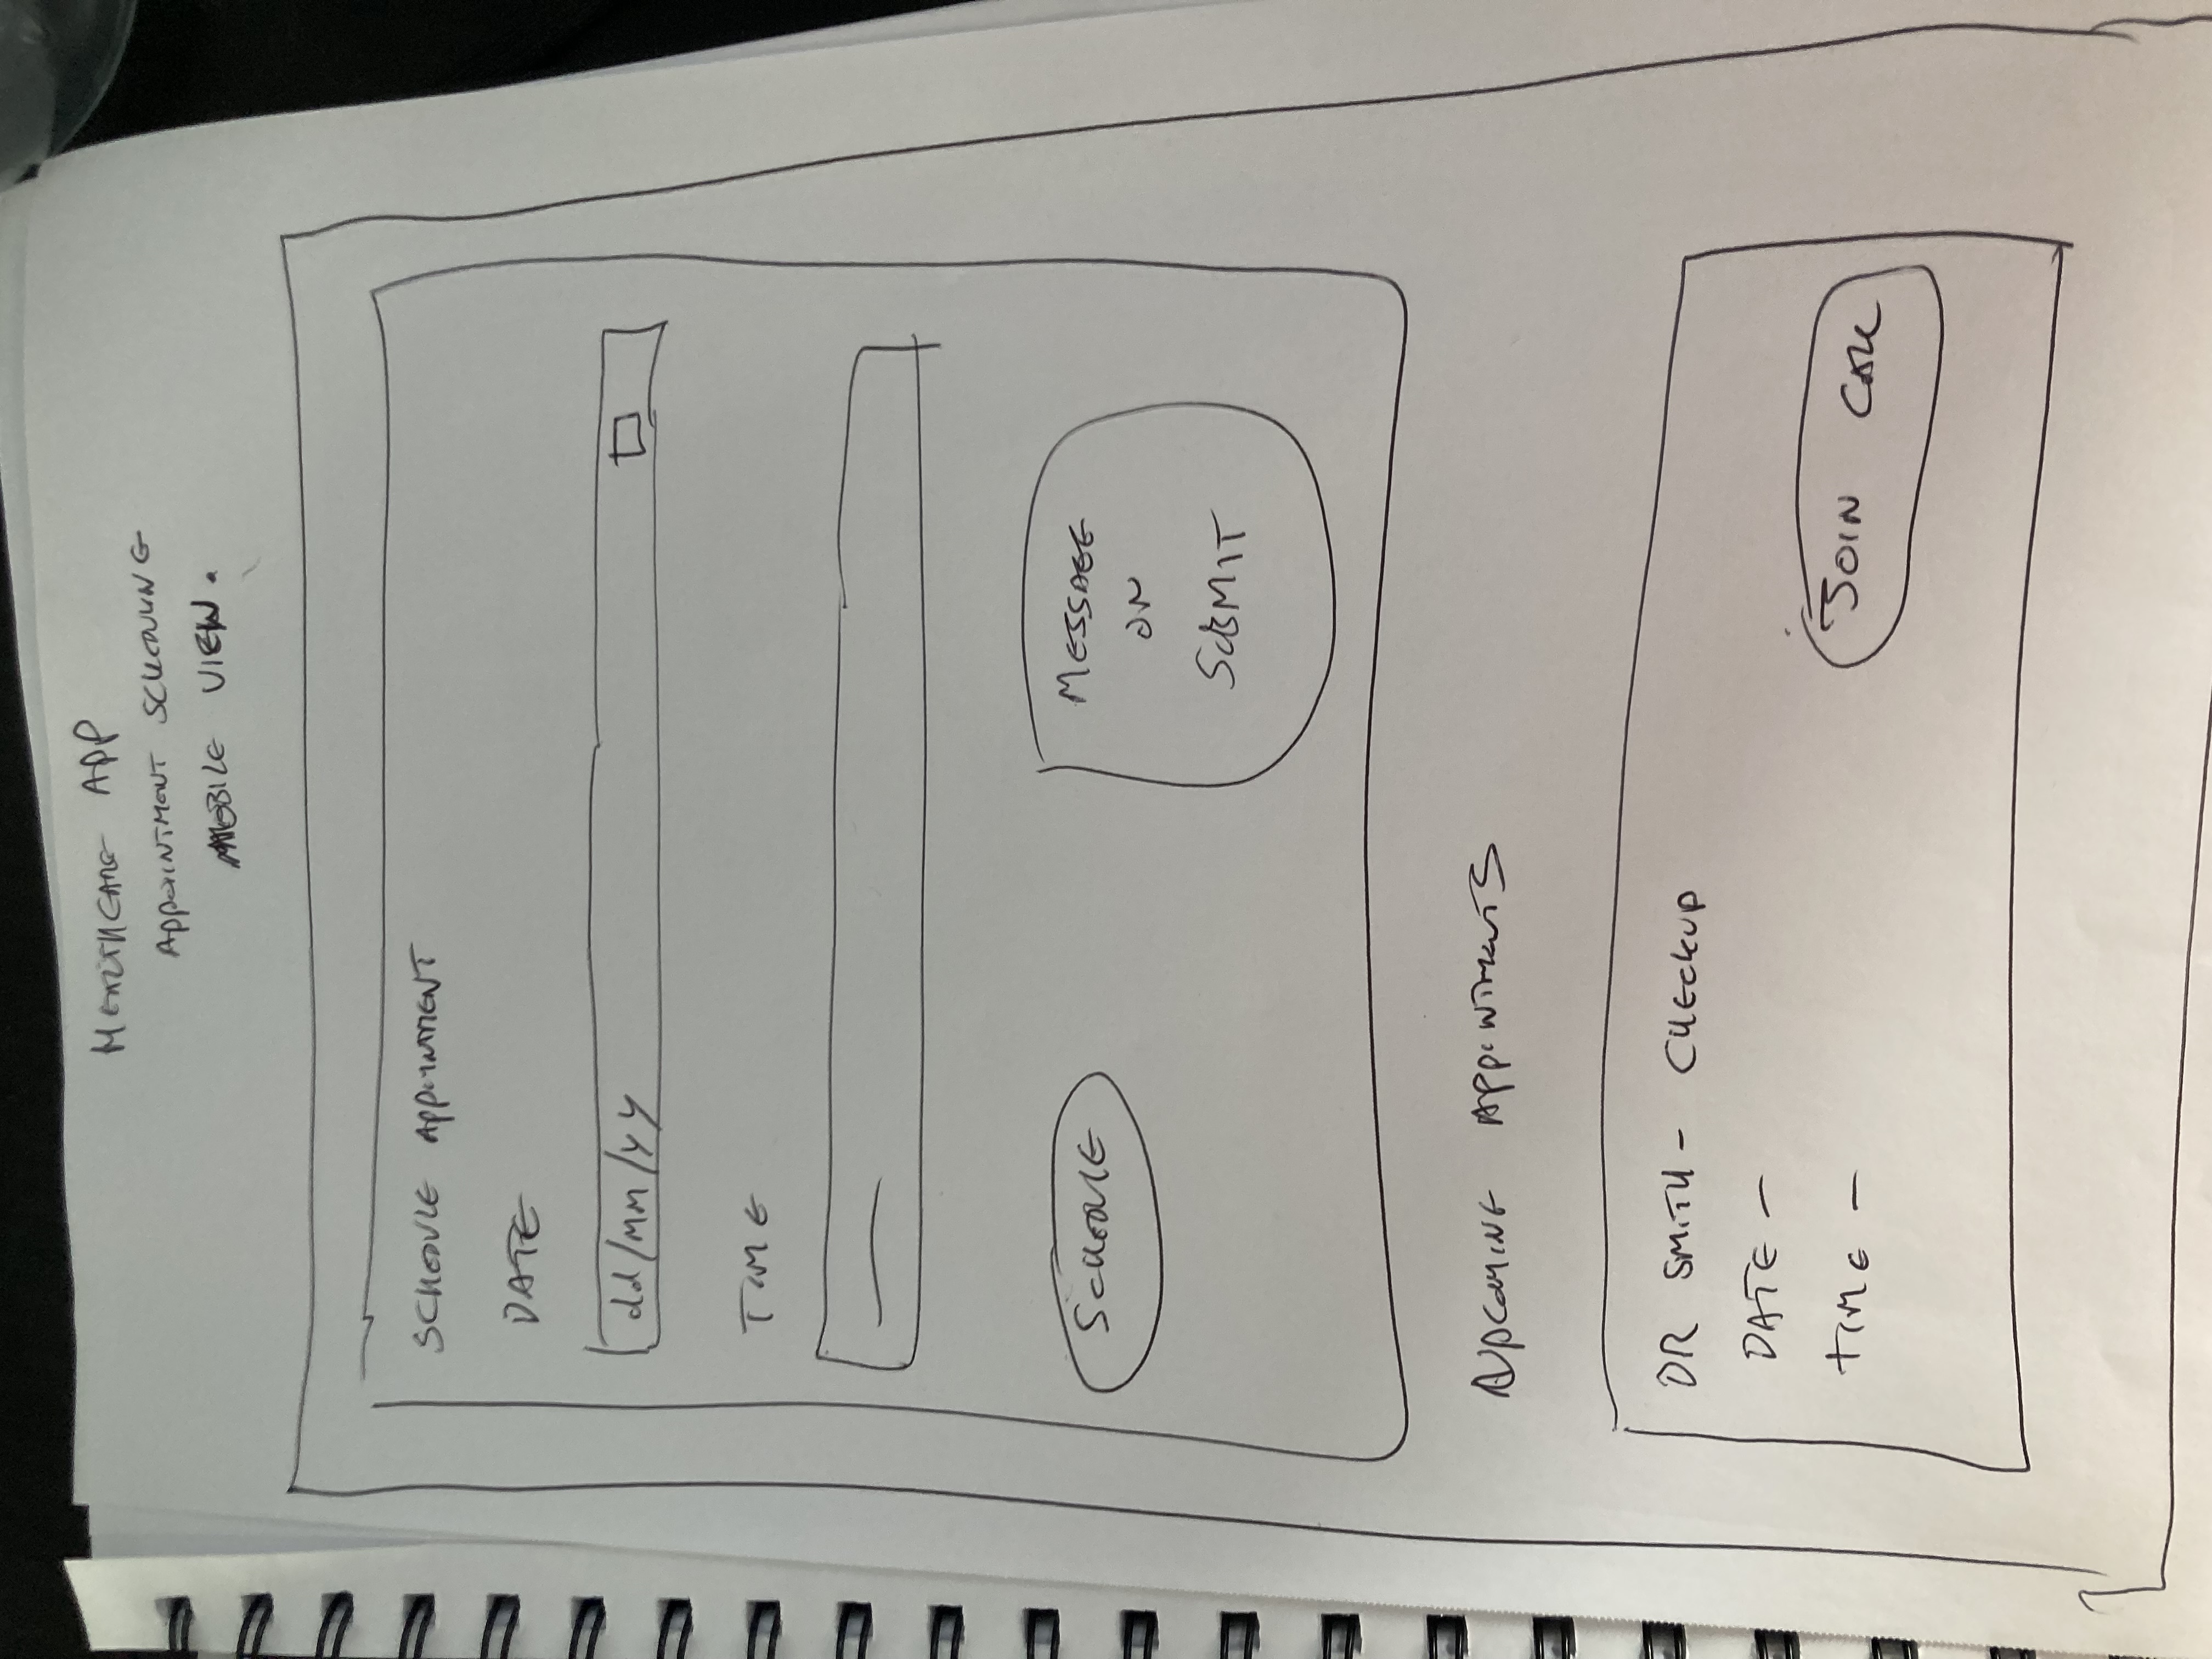 HEALTHCARE APP
APPOINTMENT SCHEDULING
MOBILE VIEW.
SCHEDULE APPOINTMENT
DATE
dd/MM/YY
TIME
SCHEDULE
MESSAGE
ON
SUBMIT
UPCOMING APPOINTMENTS
DR SMITH - CHECKUP
DATE -
TIME -
JOIN CALL